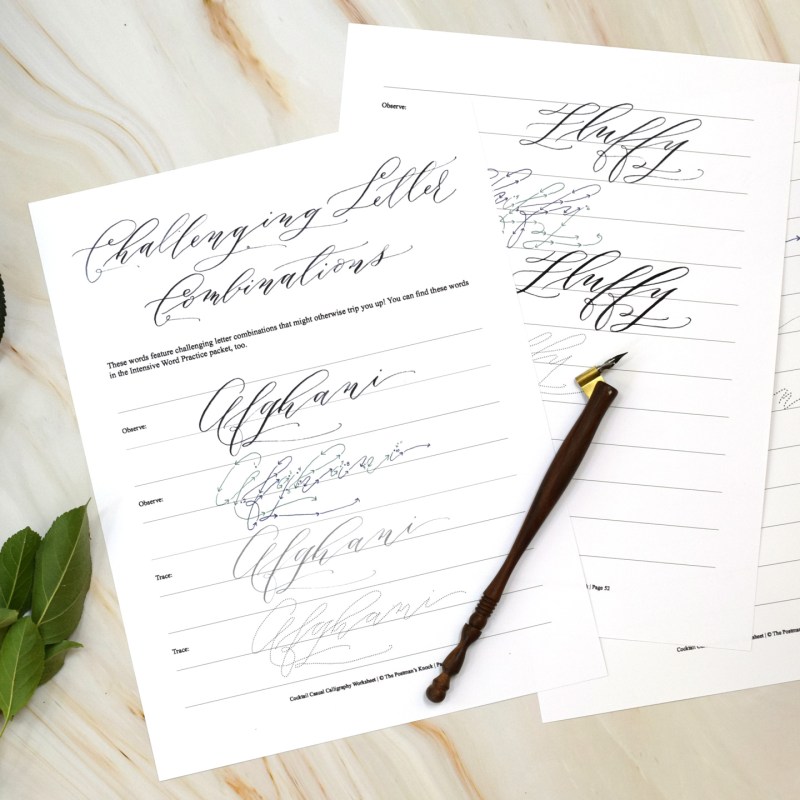 Challenging Letter
Combinations
These words feature challenging letter combinations that might otherwise trip you up! You can find these words
in the Intensive Word Practice packet, too.
Observe:
Afghani
Observe:
Afghani
Trace:
Afghani
Trace:
Afghani
Cocktail Casual Calligraphy Worksheet | © The Postman's Knock |
Observe:
Fluffy
Fluffy
Fluffy
| Page 52
Worksheet | © The Postman's Knock